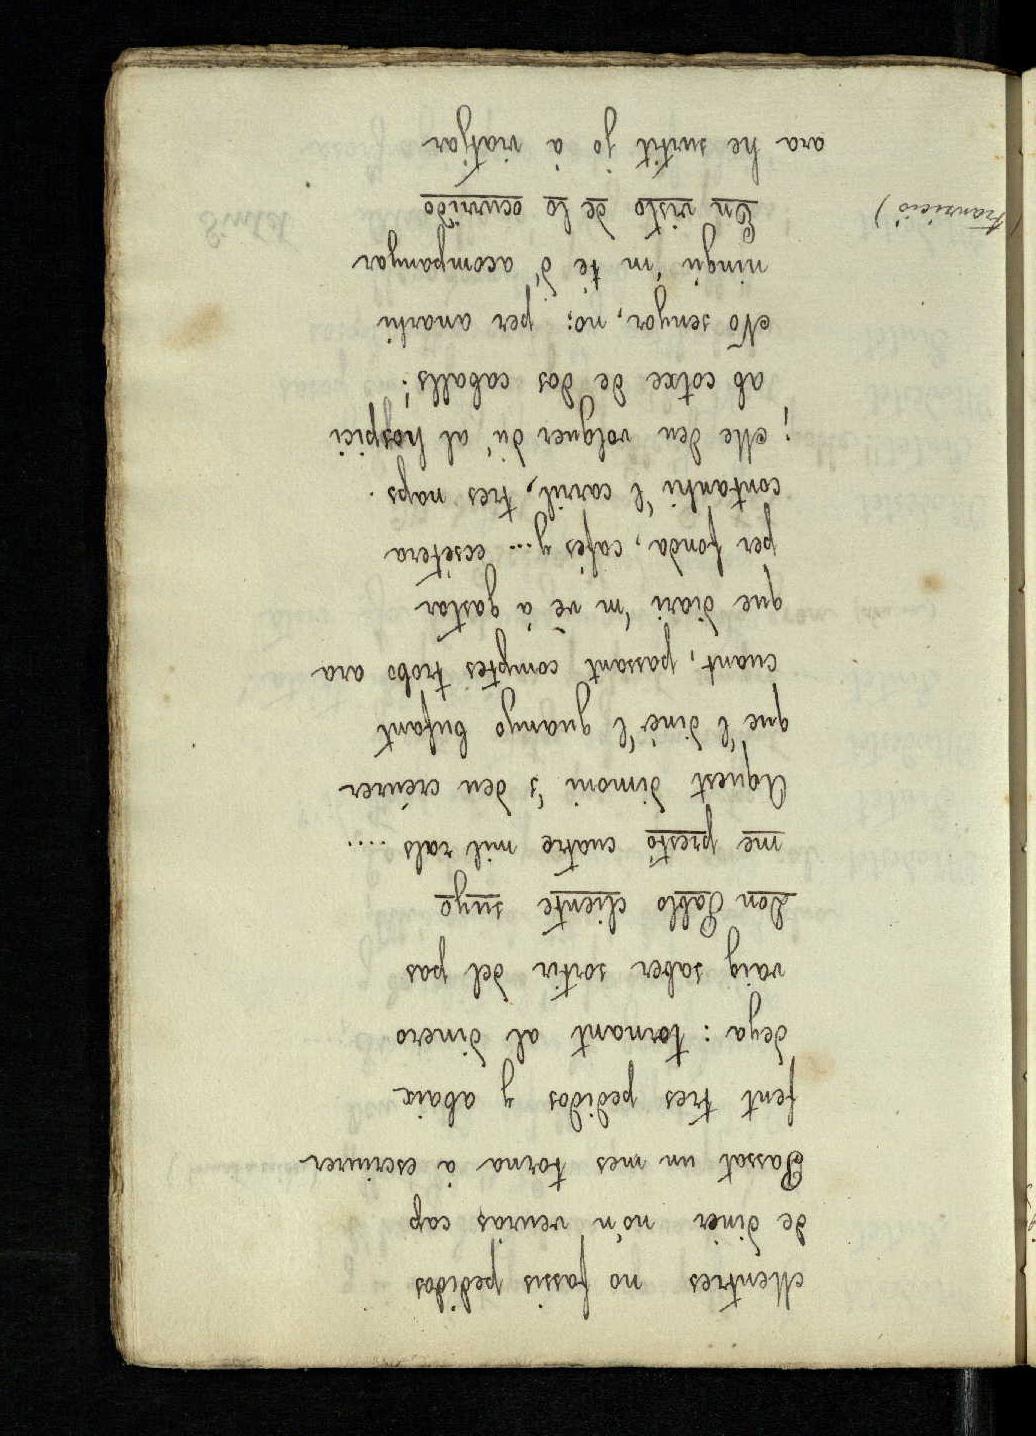 Mentres no fassis pedidos
de diner no'n veuras cap
Passat un mes torna á escriurer
fent tres pedidos y abaix
deya : tornant al dinero
vaig saber sortir del pas
Don Pablo cliente suyo
me prestó cuatre mil rals ....
Aquest dimoni 's deu créurer
que 'l diner 'l guanyo bufant
cuant, passant comptes trobo ara
que diari 'm vé á gastar
per fonda, cafés y ... ecsétera
contanhi 'l carril, tres naps.
¡ Me deu volguer dú al hospici
ab cotxe de dos caballs!
No senyor, nó; per anarhi
ningú 'm té d' acompanyar
En visto de lo ocurrido
(transició)
ara he surtit jo á viatjar